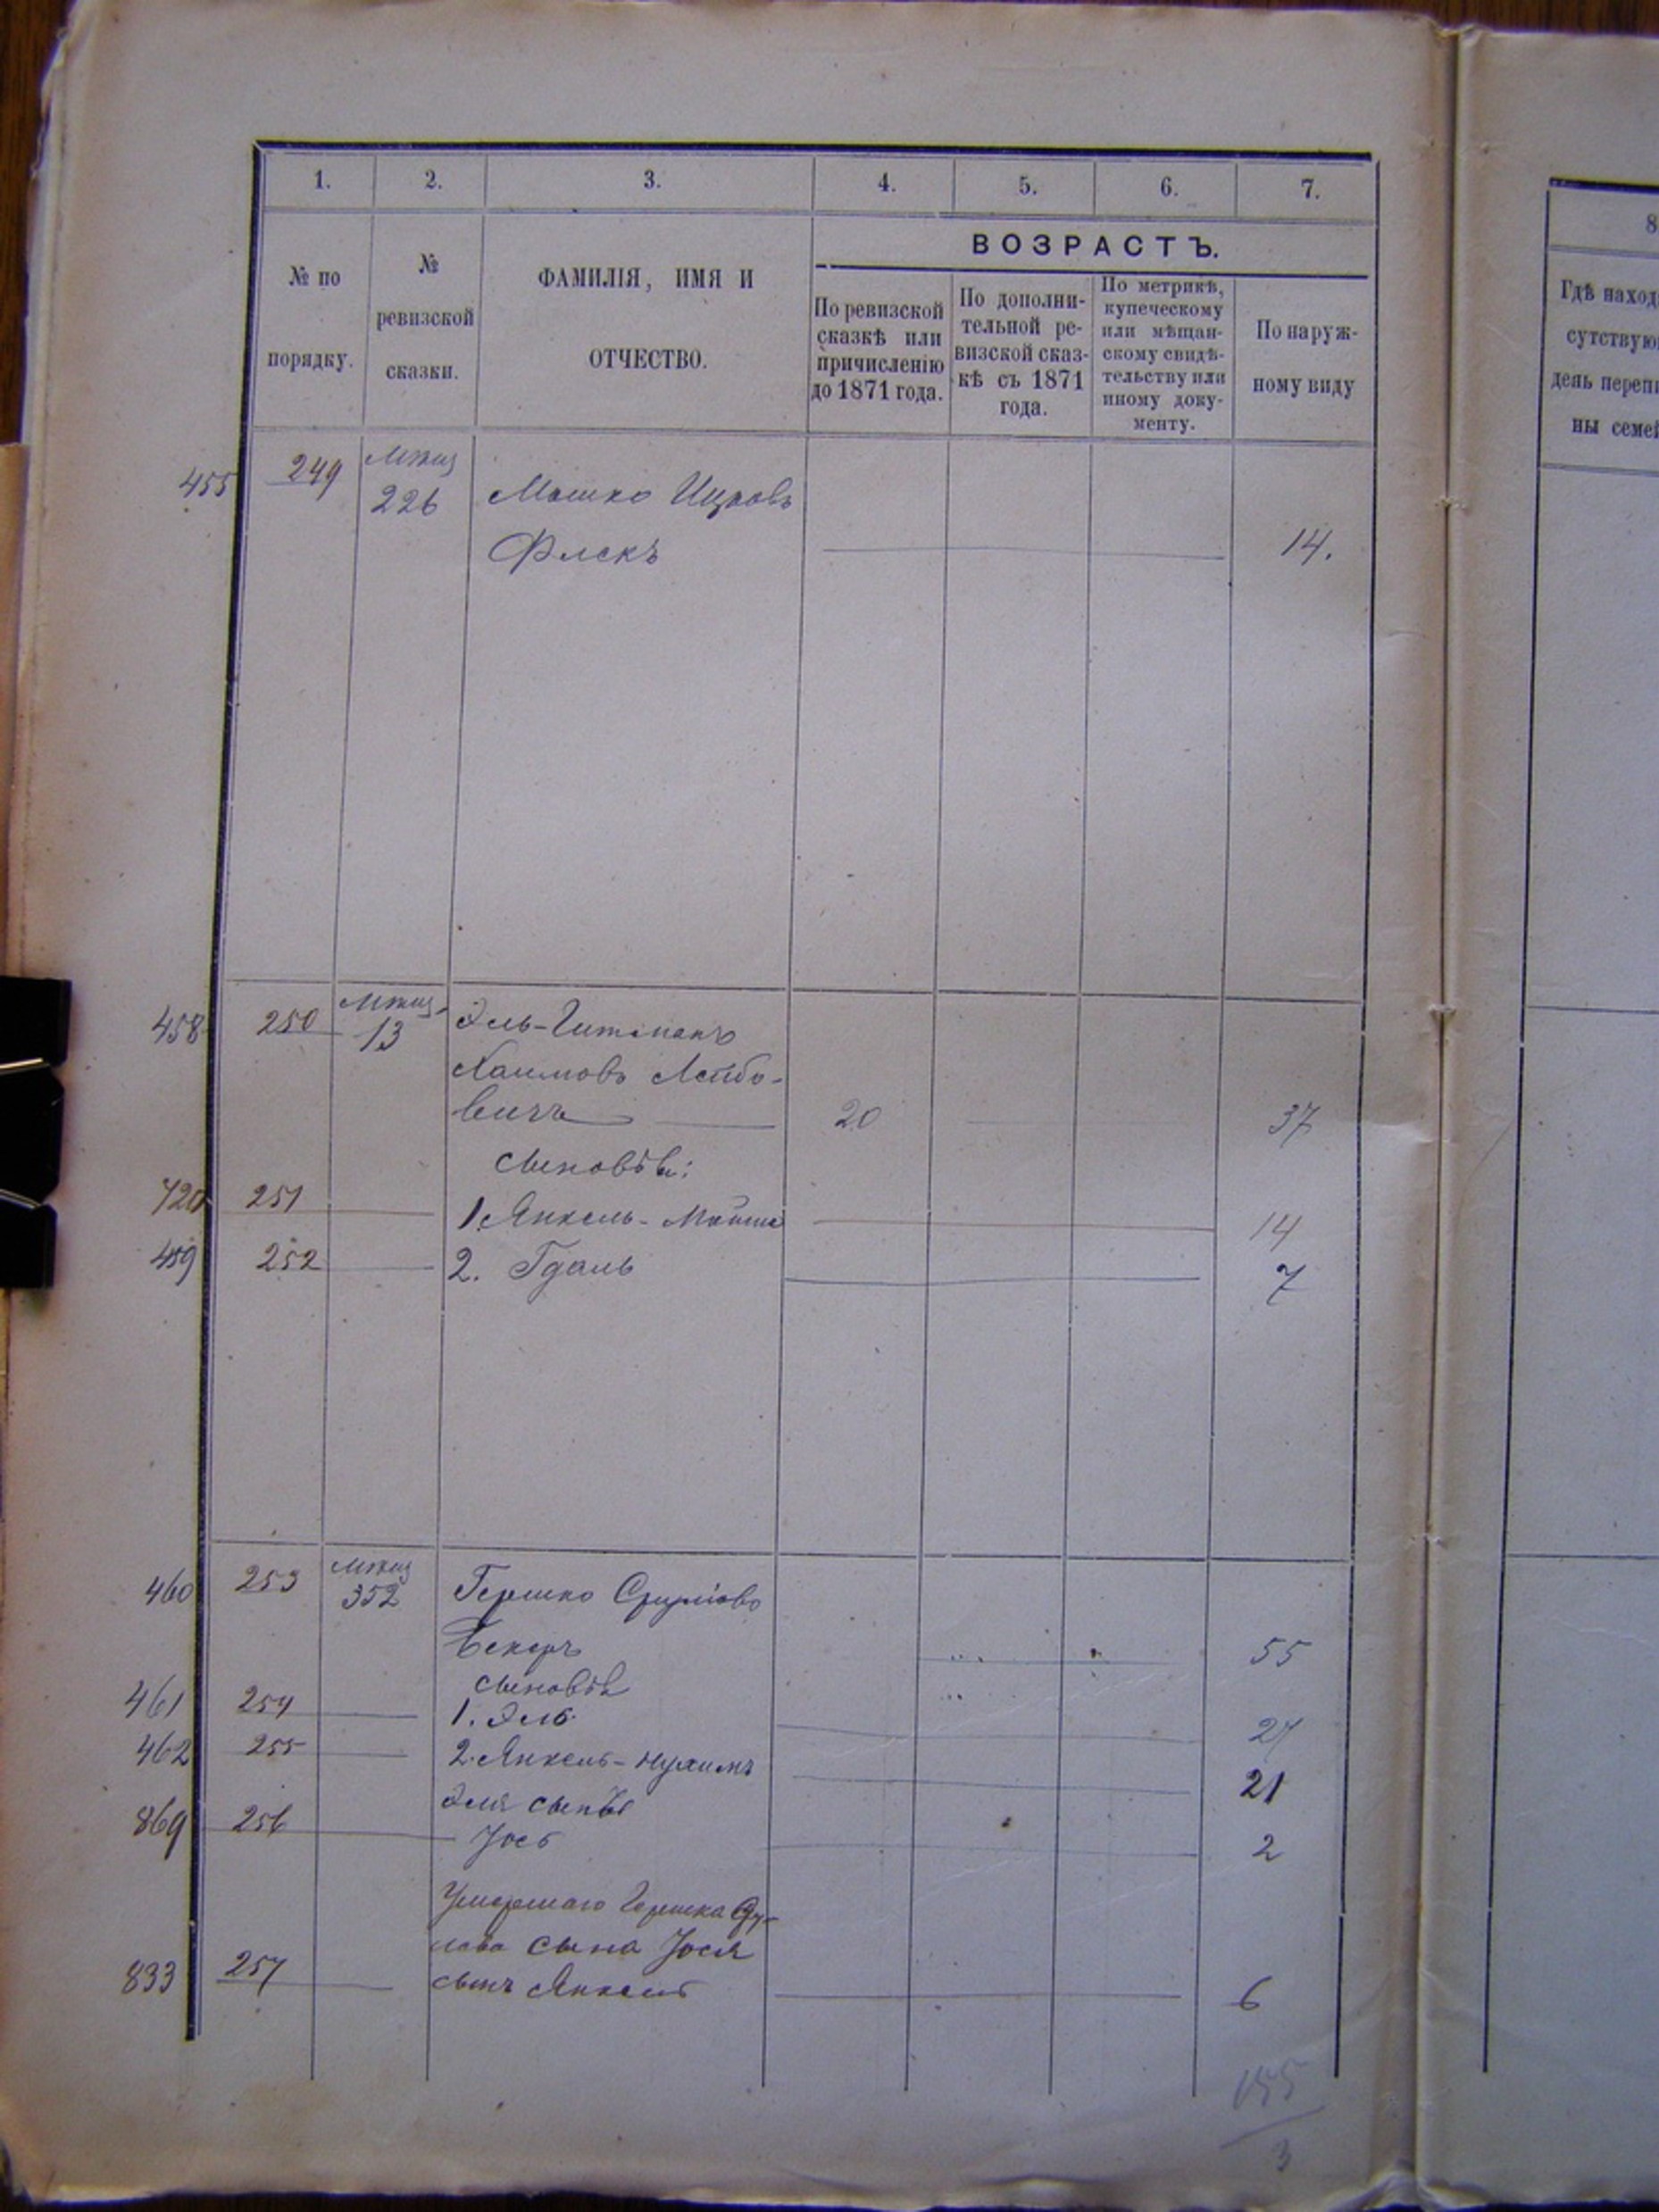 1. 2. 3. 4. 5. 6. 7.
8
№ по
порядку.
№
ревизской
сказки.
ФАМИЛІЯ, ИМЯ И
ОТЧЕСТВО.
ВОЗРАСТЪ.
По ревизской
сказкѣ или
причисленію
до 1871 года.
По дополни-
тельной ре-
визской сказ-
кѣ съ 1871
года.
По метрикѣ,
купеческому
или мѣщан-
скому свидѣ-
тельству или
иному доку-
менту.
По наруж-
ному виду
Гдѣ наход
сутствую
день перепи
ны семей
455 249 226 Мошко Ицковъ
Флскъ 14.
458 250 13
Хаимовъ Лейбо-
вичъ 20 37
сыновья:
720 251 1. Янкель-Мойше 14
459 252 2. Гдаль 7
460 253 352 Гершко Сруліовъ
Бекеръ 55
сыновья
461 254 1. Эль 27
462 255 2. Янкель-Нухимъ 21
Эля сынъ
869 256 Іось 2
Умершаго Гершка Сру-
лова сына Іося
833 257 сынъ Янкель 6
155
3